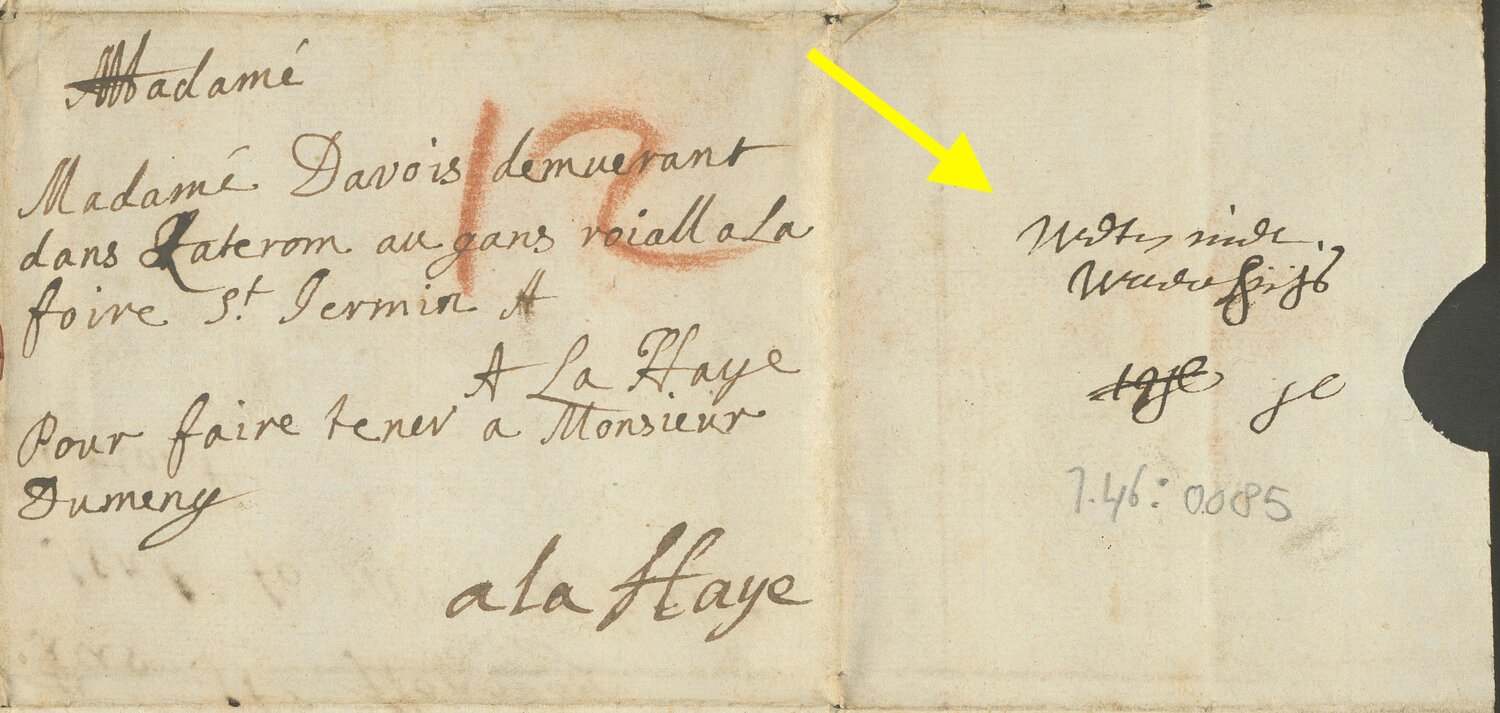 Madamé
Madamé Davois demuerant
dans au gans roiall a La
foire St Jermin A
A La Haye
Pour faire tener a Monsieur
Dumeny
a la Haye
12
7.46: 0085